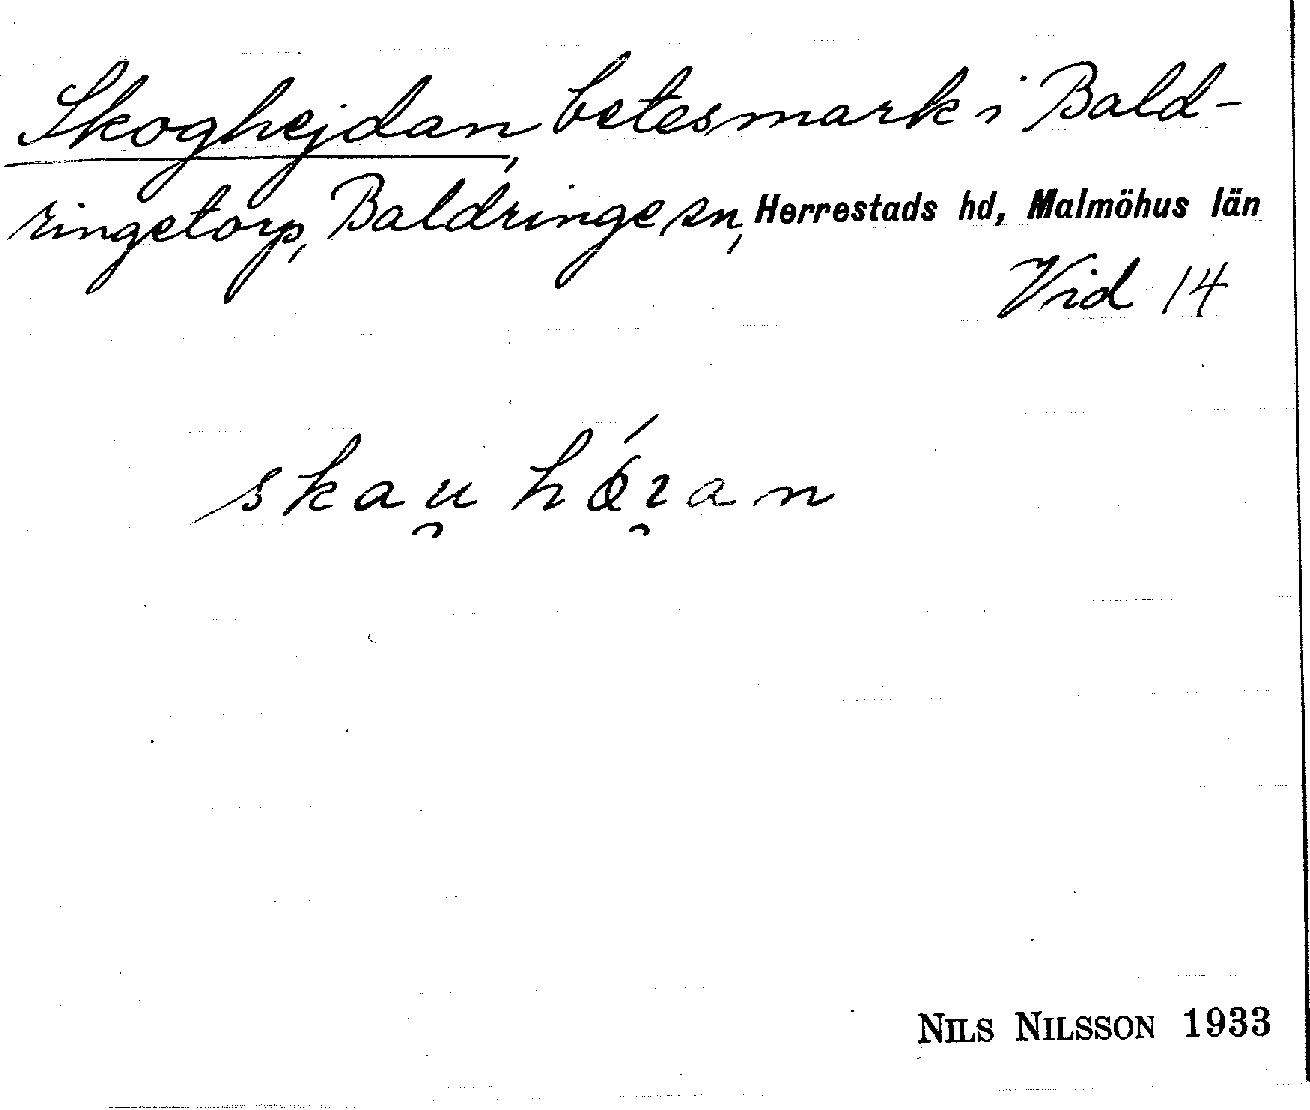 Skoghejdan, betesmark i Bald-
ringetorp, Baldringe sn, Herrestads hd, Malmöhus län
Vid 14
skau̯ hǿɪ̯an
NILS NILSSON 1933